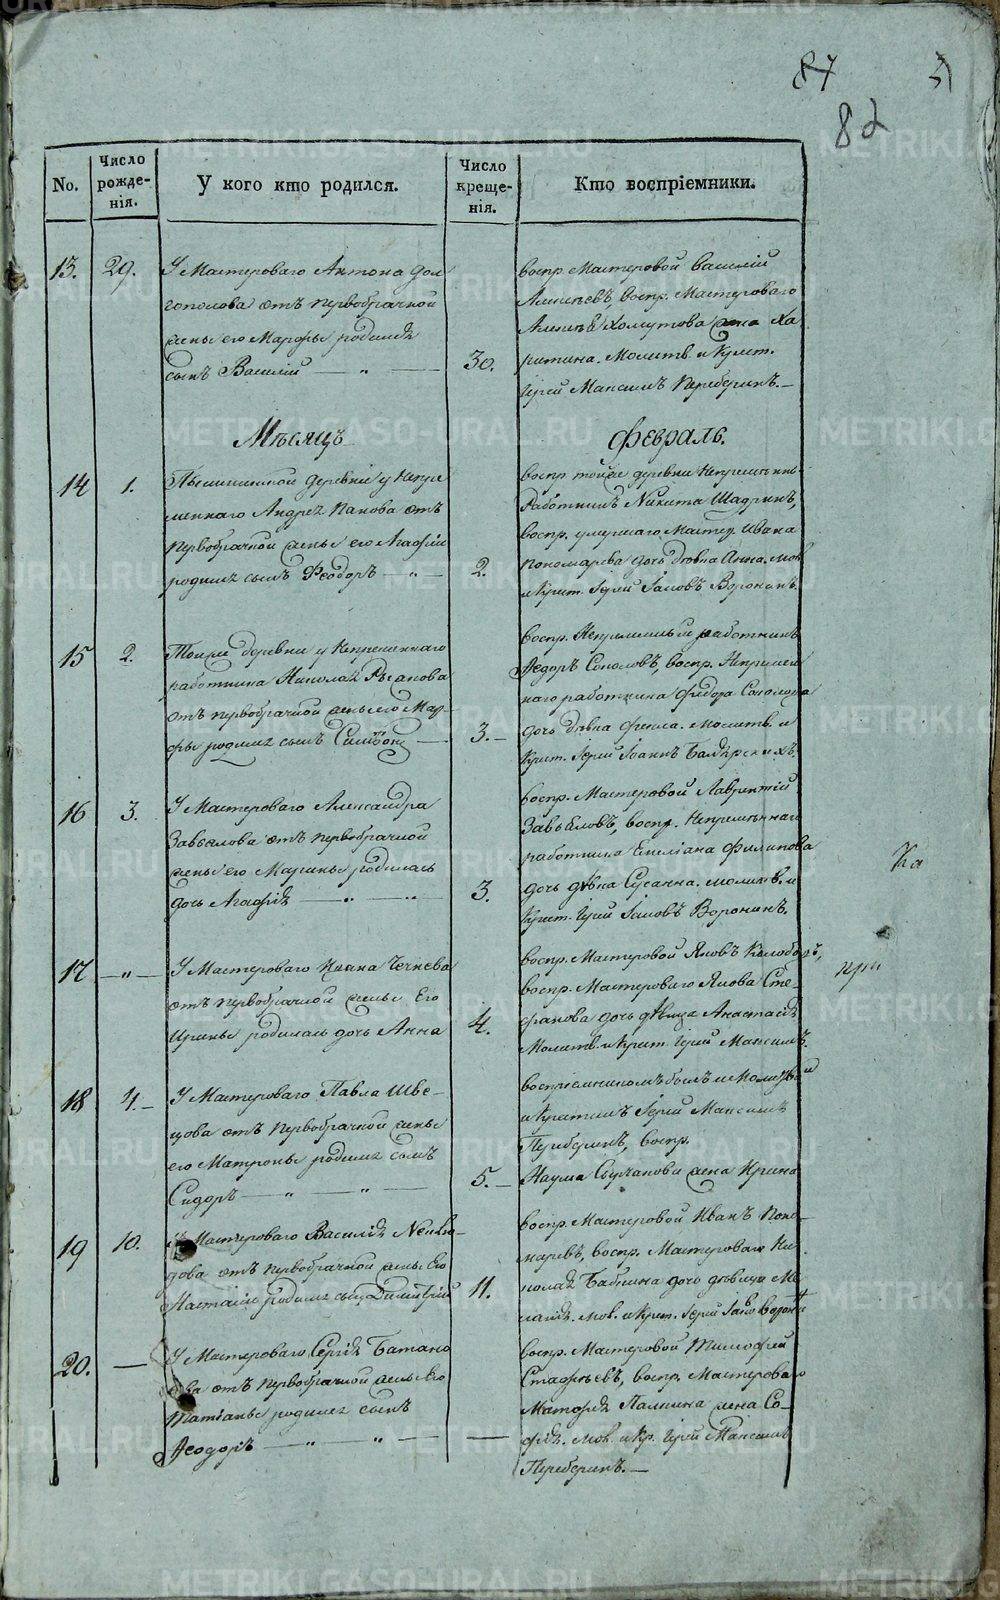 87
82
No.
Число рожде-
нія.
У кого кто родился.
Число креще-
нія.
Кто воспріемники.
13. 29. У Мастероваго Антона Дол
гополова отъ первобрачной
жены его Марѳы родился
сынъ Василій — „ —
30.
воспр. Мастеровой Василій
воспр. Мастероваго
Хомутова жена Ха
ритина. Молитв. и Крест.
Іерей Максимъ Переберинъ.—
Мѣсяцъ Февраль.
14 1. Пышминской деревни у Непре
меннаго Андрея Панова отъ
первобрачной жены его Агафіи
родился сынъ Ѳеодоръ — „ —
2.
воспр. тойже деревни Непременны
Работникъ Никита Шадринъ,
воспр. умершаго Мастер. Ивана
Пономарева дочь дѣвка Анна. мол
и Крест. Іерей Іаковъ Воронинъ.
15 2. Тойже деревни у Непременнаго
работника Николая Русанова
отъ первобрачной жены его Мар-
ѳы родился сынъ Симеонъ —
3.—
воспр. Непременный работникъ
Ѳедоръ Соколовъ, воспр. Непремен
наго работника Федора Соколова
дочь дѣвка Фекла. Молитв. и
Крест. Іерей Іоаннъ
16 3. У Мастероваго Александра
Завьялова отъ первобрачной
жены его Марины родилась
дочь Агафія — „ — „ —
3.
воспр. Мастеровой Лаврентій
Завьяловъ, воспр. Непременнаго
работника Емеліана Филипова
дочь дѣвка Сусанна. молитв. и
Крест. Іерей Іаковъ Воронинъ.
17 —„— У Мастероваго Ивана Чечнева
отъ первобрачной жены Его
Ирины родилась дочь Анна
4.
воспр. Мастеровой Яковъ
воспр. Мастероваго Якова Сте-
фанова дочь дѣвица Анастасія
Молитв. и Крест. Іерей Максимъ.
18 4.— У Мастероваго Павла Шве-
цова отъ первобрачной жены
его Матроны родился сынъ
Сидоръ — „ — „ —
5.—
воспріемникомъ былъ и Молитв.
и Крестилъ Іерей Максимъ
Переберинъ, воспр.
Наума жена Ирина
19 10. У Мастероваго Василія
отъ первобрачной жены Его
Настасіи родился сынъ Димитрій
11.
воспр. Мастеровой Иванъ Поно-
маревъ, воспр. Мастероваго Ни
колая Бабкина дочь дѣвица Ме
ланія. мол. и Крест. Іерей Іаковъ Воронин
20. — У Мастероваго Сергія
отъ первобрачной жены Его
Татіаны родился сынъ
Ѳеодоръ — „ — „ —
—
воспр. Мастеровой Тимофей
Стафѣевъ, воспр. Мастероваго
Матѳея Палкина жена Со-
фія. мол. и Кр. Іерей Максимъ
Переберинъ.—
METRIKI.GASO-URAL.RU